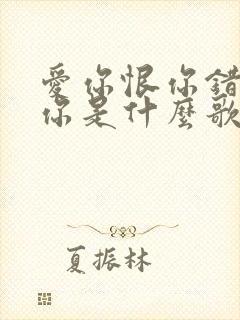 愛你恨你錯
你是什麼歌
夏振林